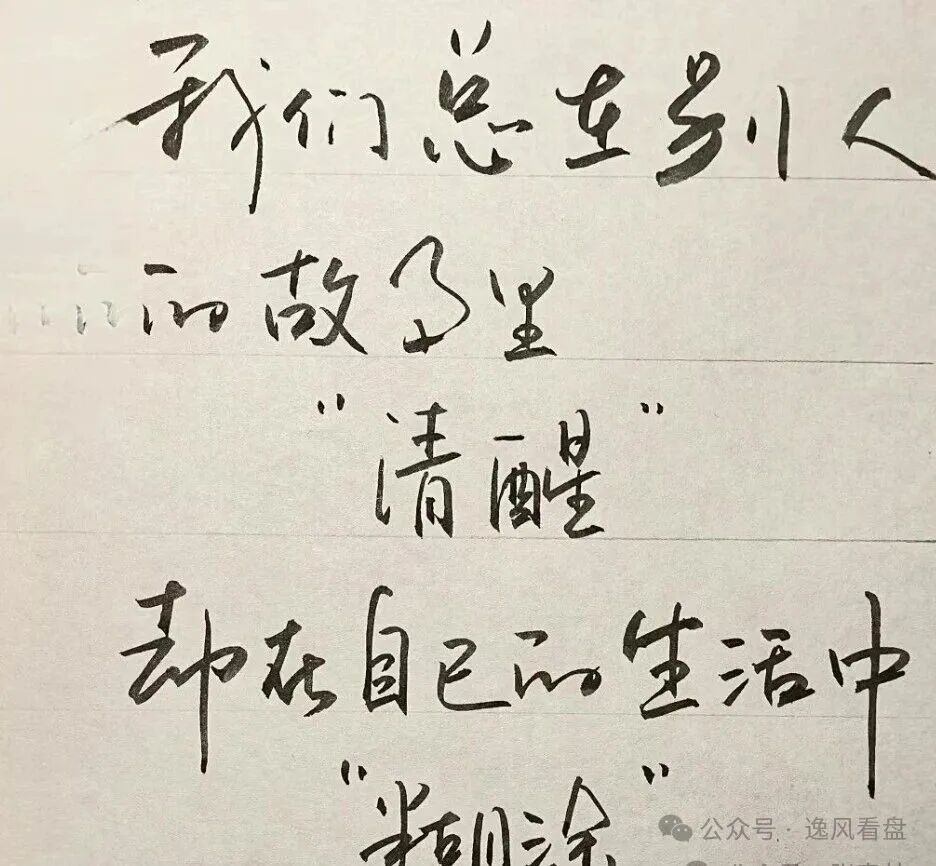 我们总在别人
的故事里
"清醒"
却在自己的生活中
"糊涂"
公众号·逸风看盘